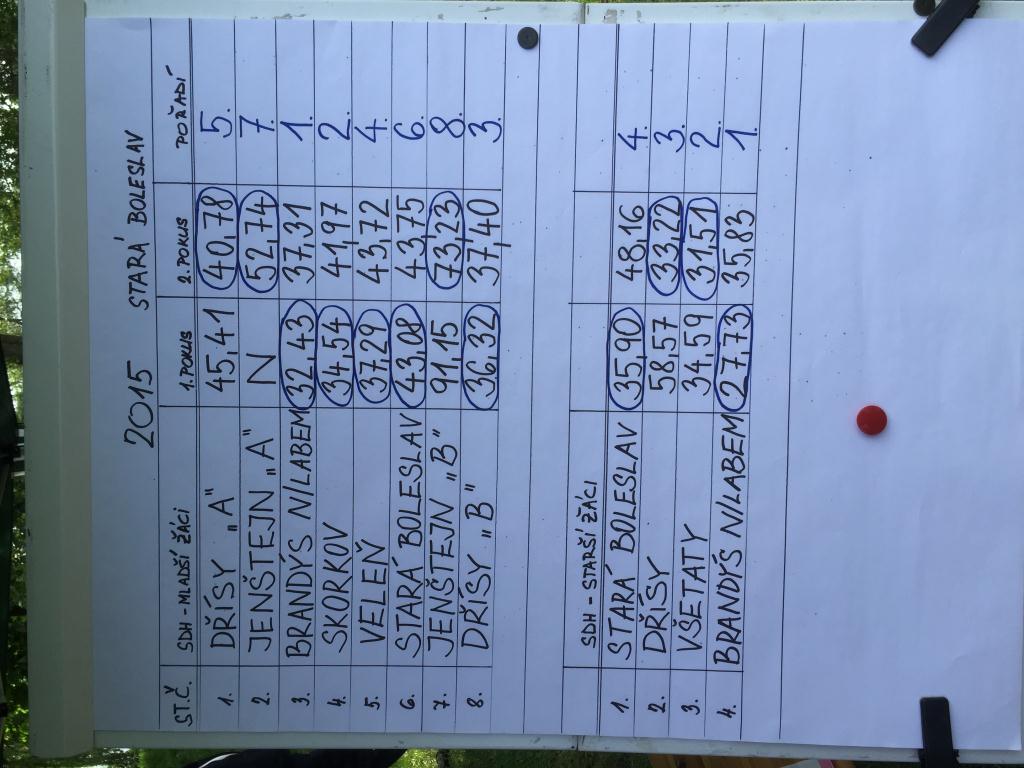 2015 STARÁ BOLESLAV
ST.Č. SDH - MLADŠÍ ŽÁCI 1. POKUS 2. POKUS POŘADÍ
1. DŘÍSY „A" 45,41 40,78 5.
2. JENŠTEJN „A" N 52,74 7.
3. BRANDÝS N/LABEM 32,43 37,31 1.
4. SKORKOV 34,54 41,97 2.
5. VELEŇ 37,29 43,72 4.
6. STARÁ BOLESLAV 43,08 43,75 6.
7. JENŠTEJN „B" 91,15 73,23 8.
8. DŘÍSY „B" 36,32 37,40 3.
SDH - STARŠÍ ŽÁCI
1. STARÁ BOLESLAV 35,90 48,16 4.
2. DŘÍSY 58,57 33,22 3.
3. VŠETATY 34,59 31,51 2.
4. BRANDÝS N/LABEM 27,73 35,83 1.